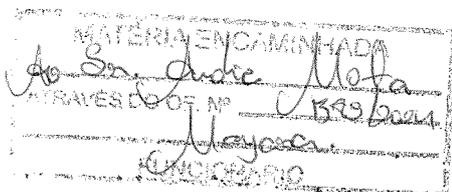 MATÉRIA ENCAMINHADA
Ao Sr. Mota
ATRAVÉS DO OF. Nº
Mayara.
FUNCIONÁRIO